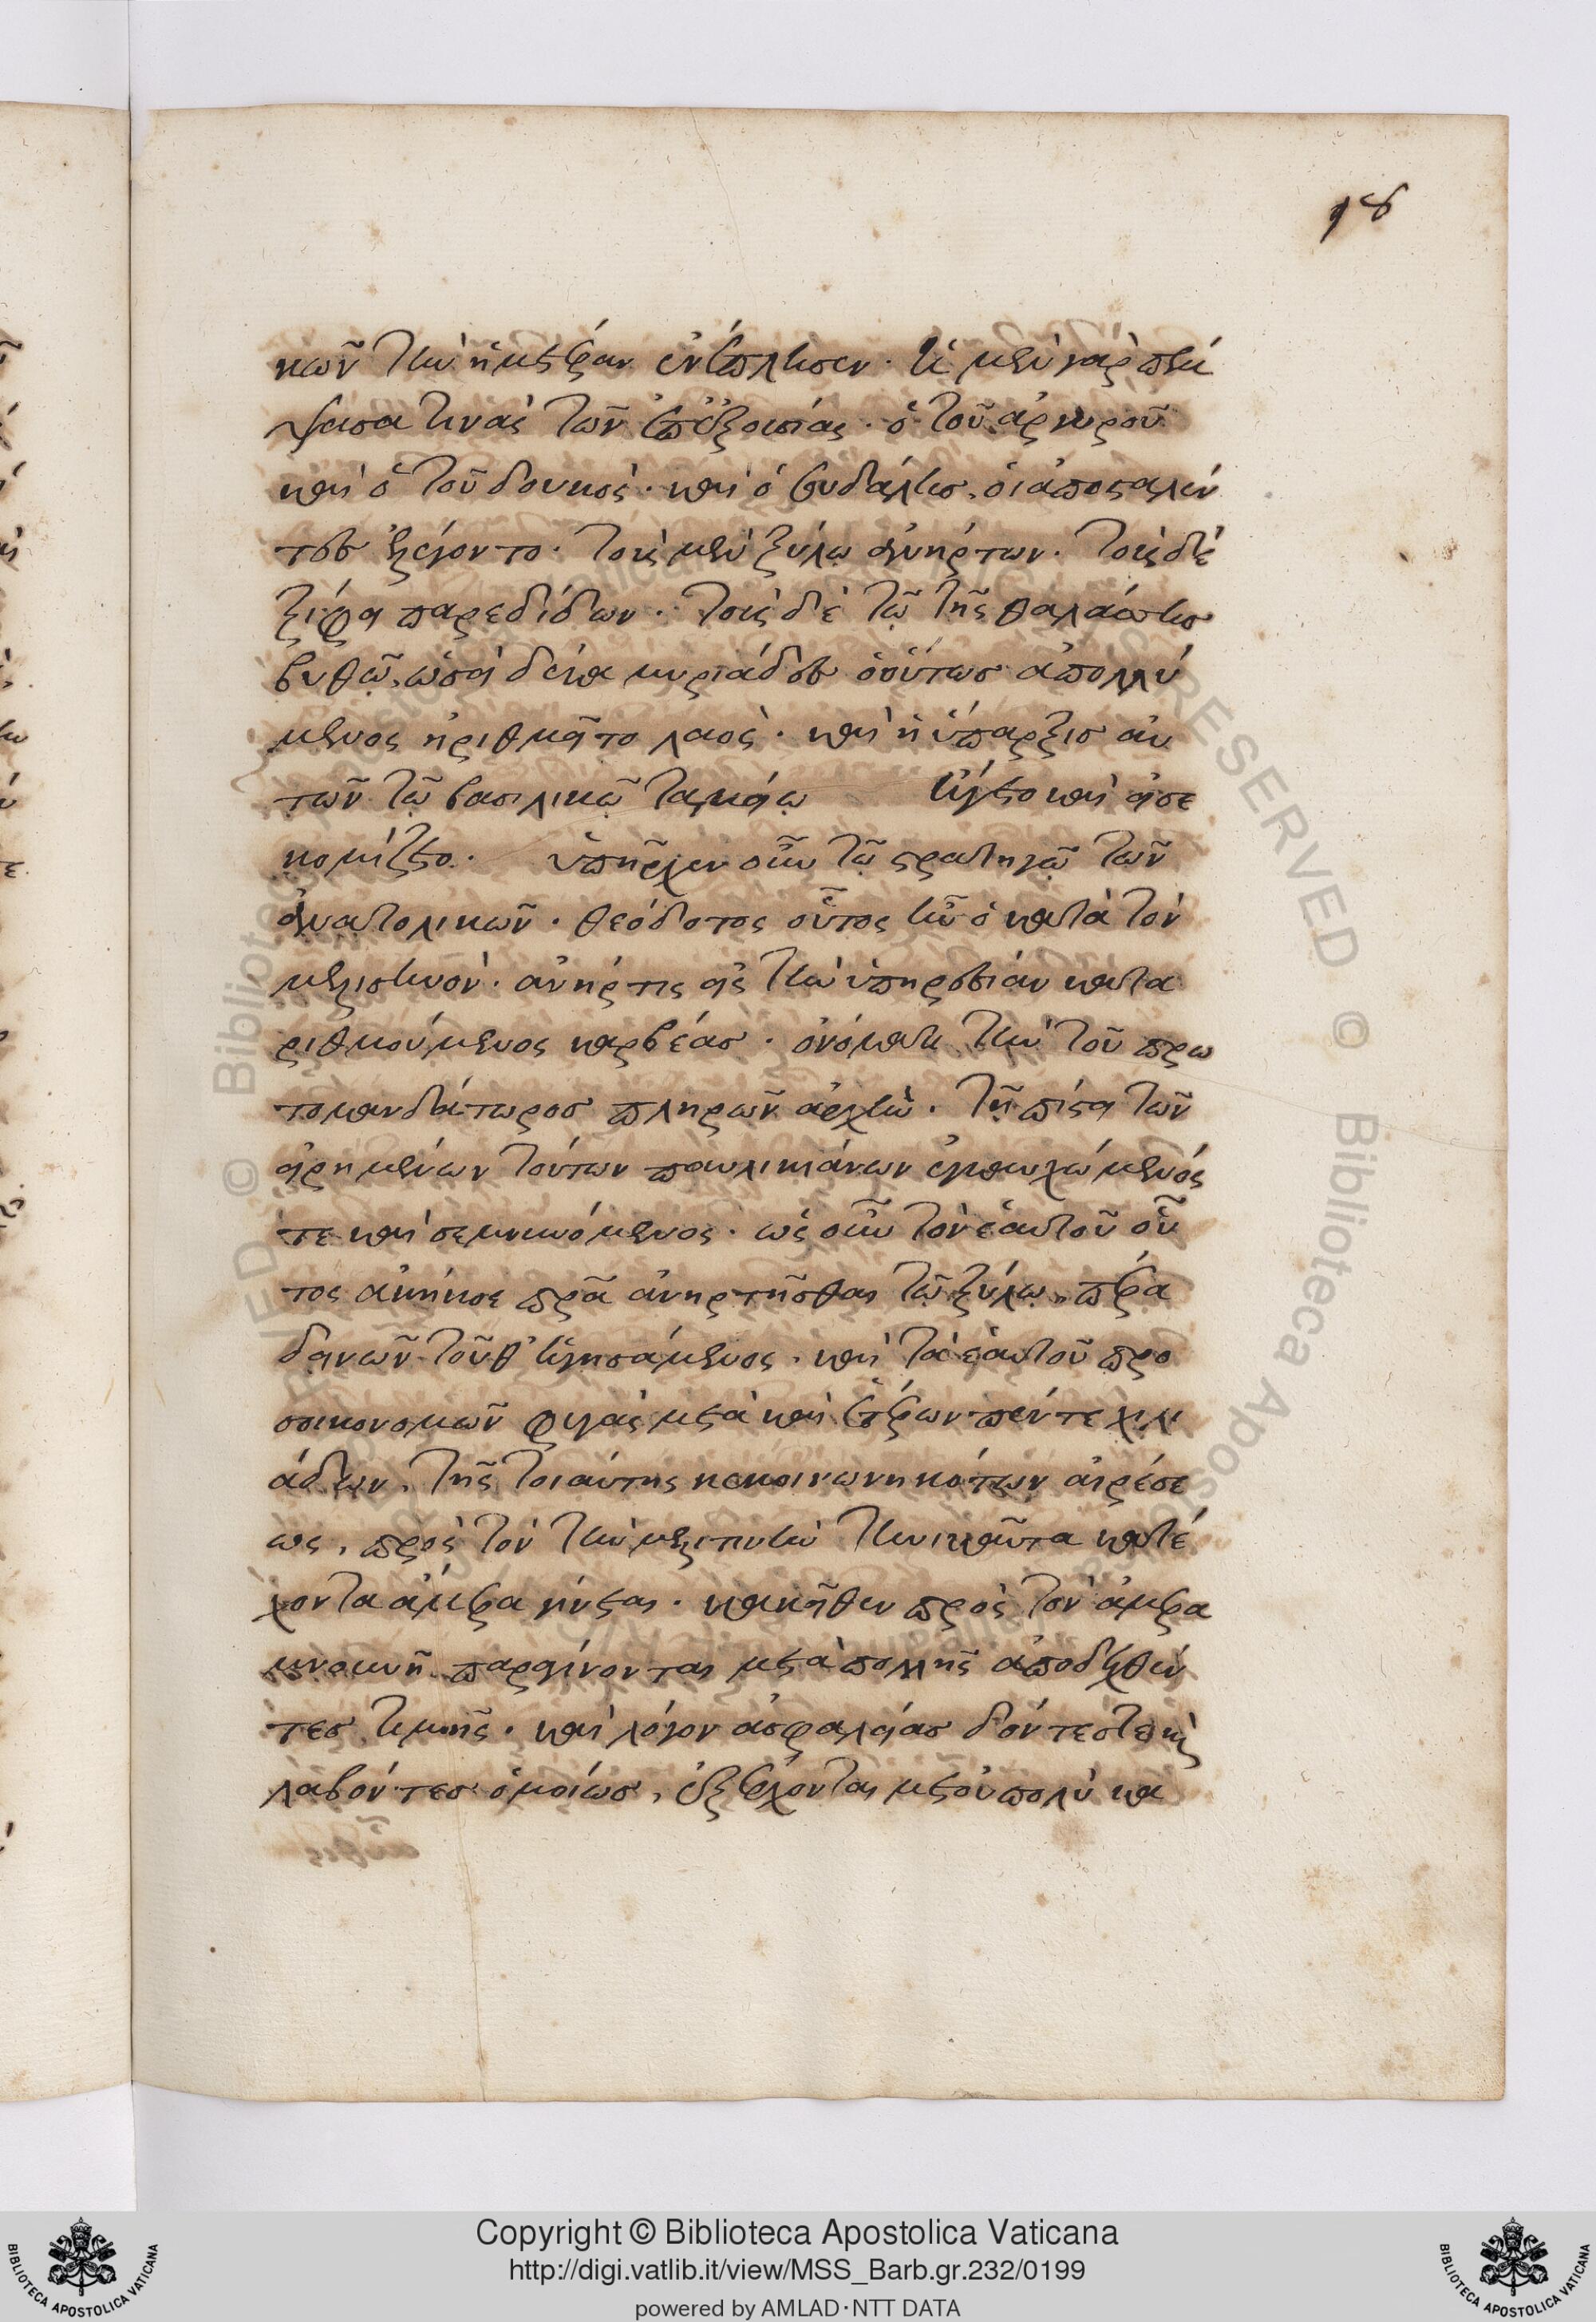 18
κῶν τὴν ἡμετέραν ἐνέπλησεν. ἡ μὲν γὰρ πέμ
ψασα τινὰς τῶν ἐπ' ἐξουσίας. ὁ τοῦ ἀργυροῦ
καὶ ὁ τοῦ δουκὸς. καὶ ὁ σουδάλης. οἱ ἀποσταλέν
τες ἐλέγοντο. τοὺς μὲν ξύλῳ ἀνήρτων. τοὺς δὲ
ξίφει παρεδίδων. τοὺς δὲ τῷ τῆς θαλάσσης
βυθῷ, ὡσεὶ δέκα μυριάδες ὁ οὕτως ἀπολλύ
μενος ἠριθμεῖτο λαὸς. καὶ ἡ ὕπαρξις αὐ
τῶν τῷ βασιλικῷ ταμείῳ ἤγετο καὶ εἰσε
κομίζετο. ὑπῆρχεν οὖν τῷ στρατηγῷ τῶν
ἀνατολικῶν. θεόδοτος οὗτος ἦν ὁ κατὰ τὸν
μελισηνὸν. ἀνήρ τις εἰς τὴν ὑπηρεσίαν κατα
ριθμούμενος καρβέας. ὀνόματι τὴν τοῦ πρω
τομανδάτωρος πληρῶν ἀρχὴν. τῇ πίστει τῶν
εἰρημένων τούτων παυλικιάνων ἐγκαυχώμενός
τε καὶ σεμνυνόμενος. ὡς οὖν τὸν ἑαυτοῦ οὗ
τος ἀκήκοε πρα ἀνηρτῆσθαι τῷ ξύλῳ, πέρα
δεινῶν τοῦθ' ἡγησάμενος. καὶ τὰ ἑαυτοῦ προ
οικονομῶν φυγὰς μετὰ καὶ ἑτέρων πέντε χιλι
άδων, τῆς τοιαύτης κεκοινωνηκότων αἱρέσε
ως, πρὸς τὸν τὴν μελιτηνὴν τηνικαῦτα κατέ
χοντα ἄμερα γίνεται. κἀκεῖθεν πρὸς τὸν ἀμερα
μνουνῆ παραγίνονται μετὰ πολλῆς ἀποδεχθέν
τες τιμῆς. καὶ λόγον ἀσφαλείας δόντες τε καὶ
λαβόντες ὁμοίως, ἐξέρχονται μετ' οὐ πολὺ κα